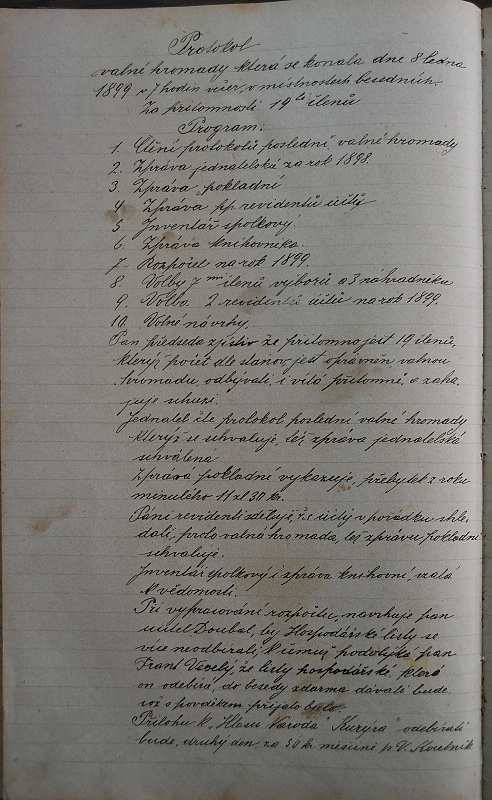 Protokol
valné hromady která se konala dne 8 ledna
1899 v 7 hodin večer, v místnostech besedních.
Za přítomnosti 19ti členů
Program:
1. Čtění protokolů poslední valné hromady
2. Zpráva jednatelská za rok 1898.
3. Zpráva pokladní
4 Zpráva pp. revidentů účtů
5 Inventář spolkový.
6. Zpráva knihovníka.
7- Rozpočet na rok 1899.
8. Volby 7mi členů výborů a 3 náhradníků
9. Volba 2 revidentů účtů na rok 1899.
10. Volné návrhy.
Pan předseda zjistiv že přítomno jest 19 členů,
který počet dle stanov jest oprávněn valnou
hromadu odbývati i vítá přítomné, a zaha-
juje schůzi.
Jednatel čte protokol poslední valné hromady
kterýž se schvaluje, též zpráva jednatelská
schválena
Zpráva pokladní vykazuje, přebytek z roku
minulého 11 zl 30 kr.
Páni revidenti sdělují, že účty v pořádku shle-
dali, proto valná hromada, též zprávu pokladní
schvaluje.
Inventář spolkový i zpráva knihovní, vzatá
k vědomosti.
Při vypracování rozpočtu, navrhuje pan
učitel Doubal, by Hospodářské listy se
více neodbíraly, k čemuž podotýká pan
Frant Veselý, že listy hospodářské, které
on odebírá, do besedy zdarma dávati bude.
což s povděkem přijato bylo.
Přílohu k "Hlasu Národa" "Kurýra" odebírati
bude, druhý den, za 50 kr. měsíčně p V. Koutník